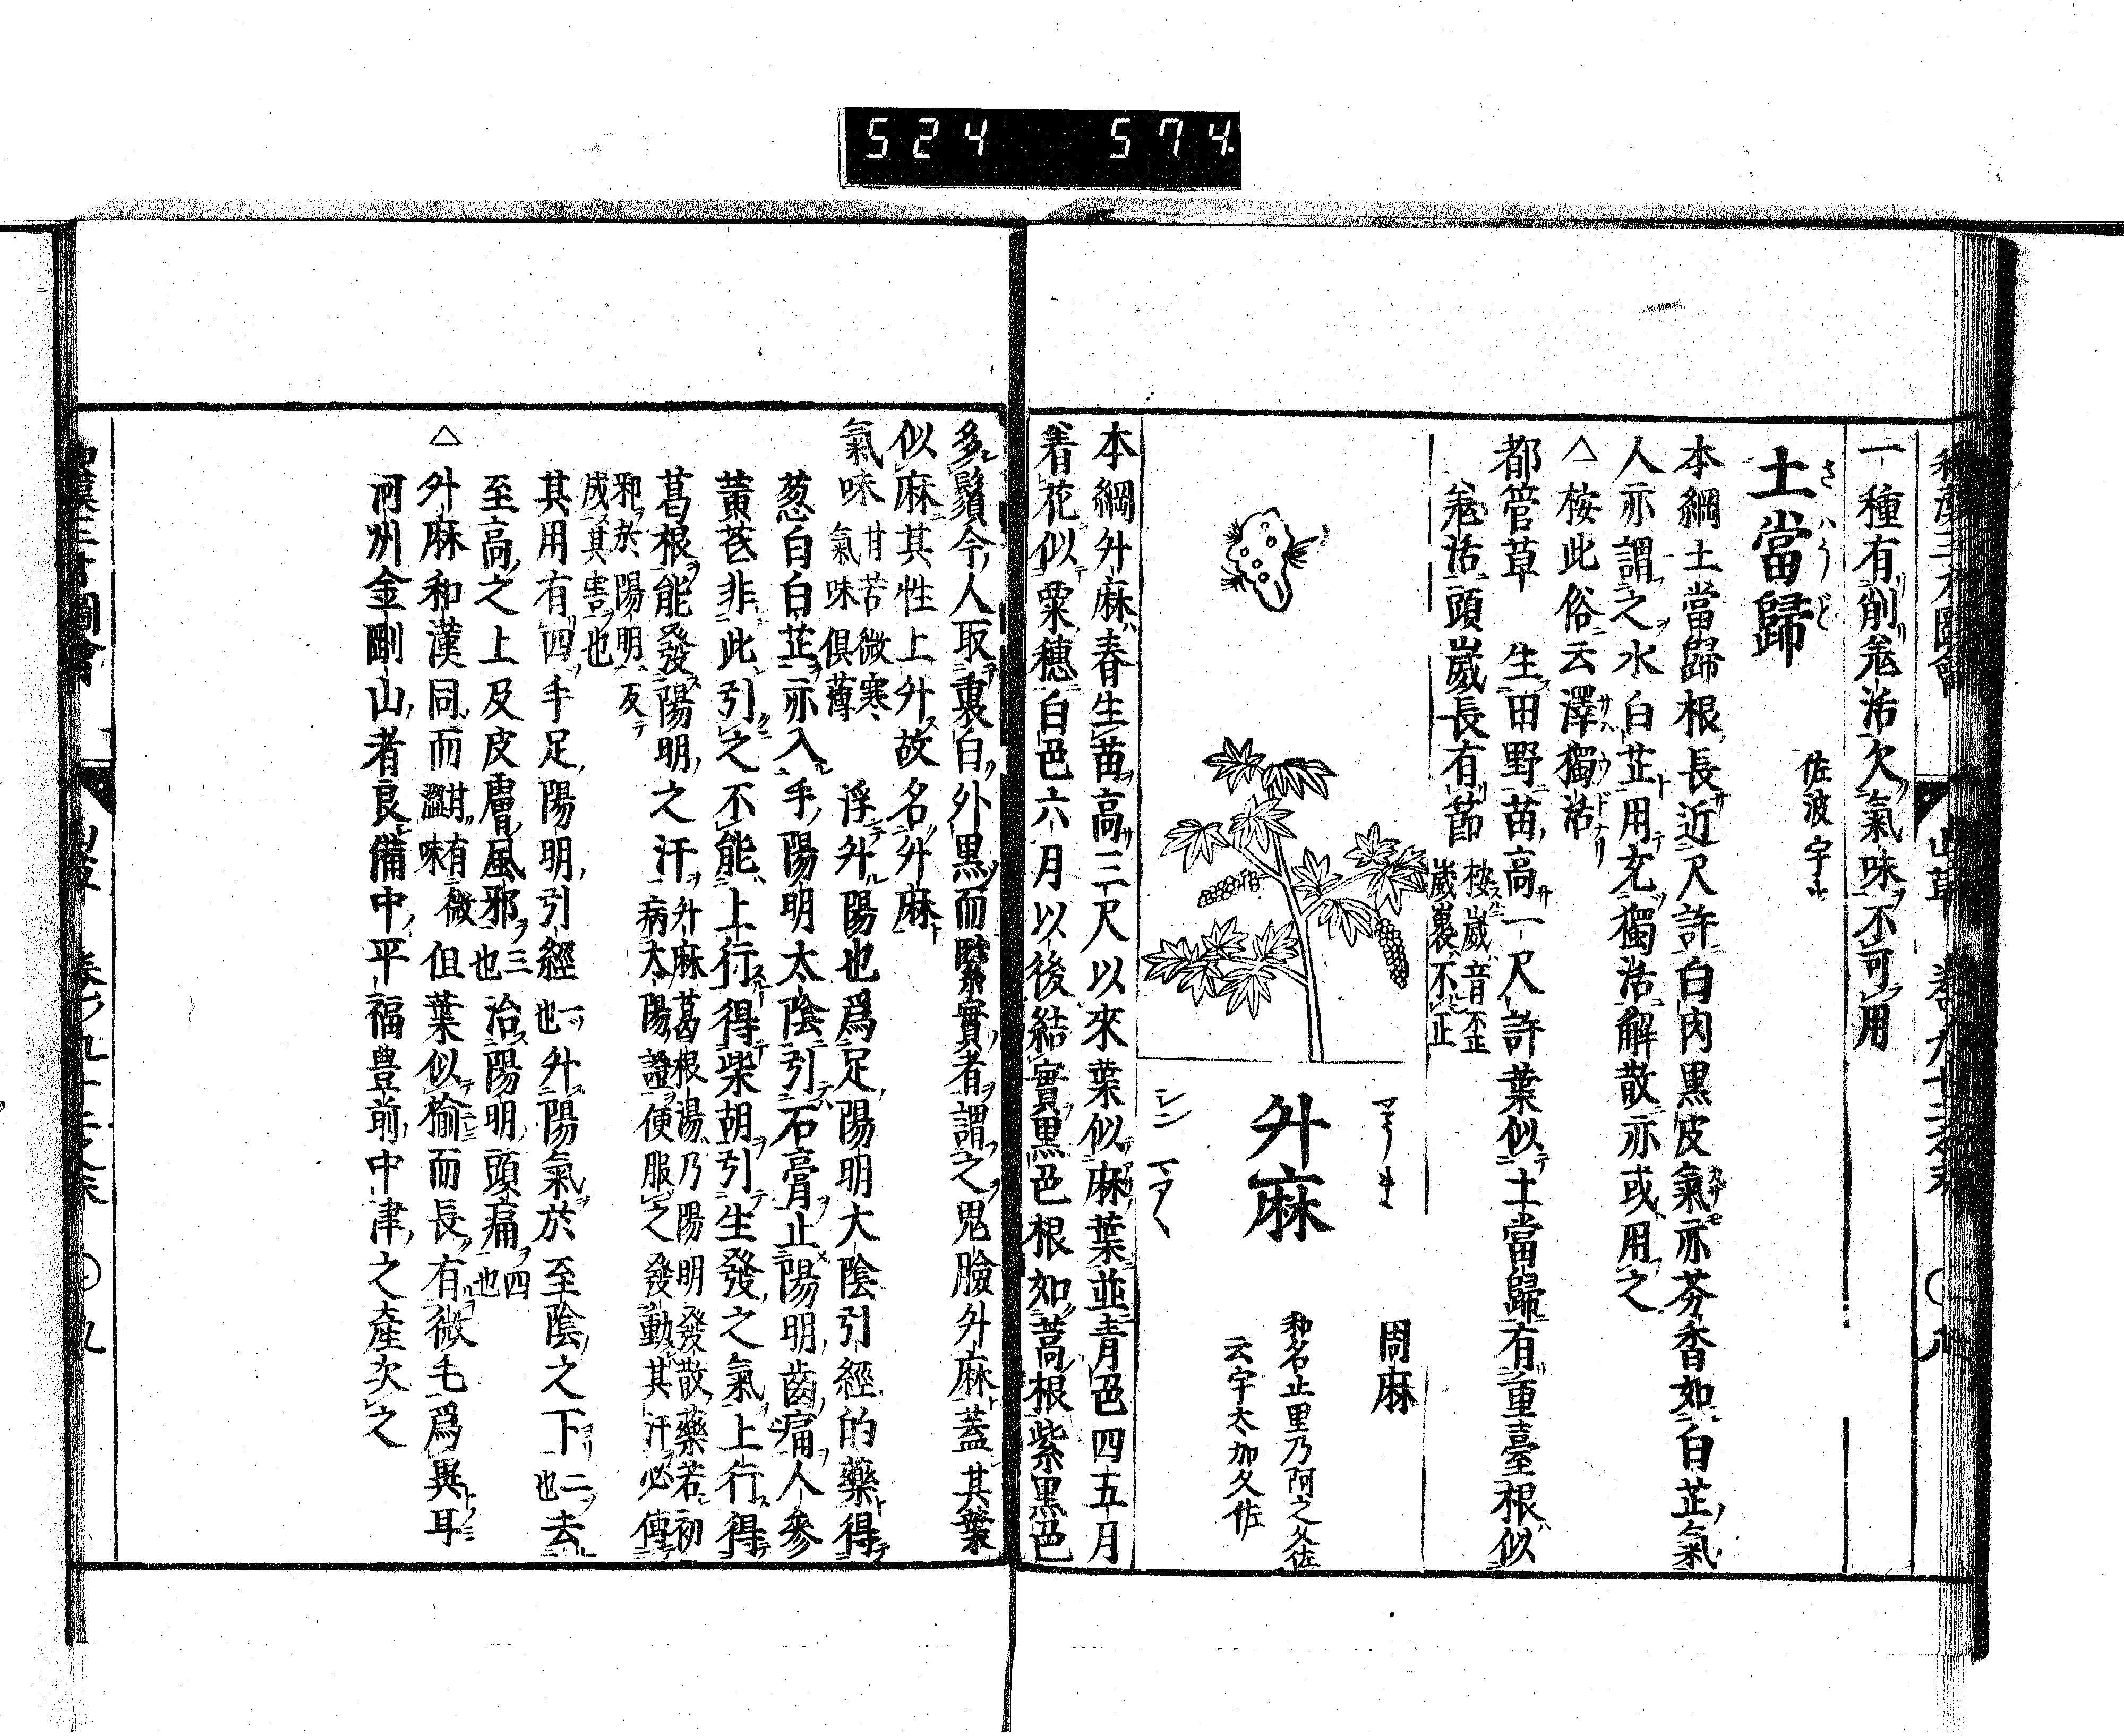 524 574
一種有削羗活欠氣味不可用
土當歸
さハうど
佐波宇止
本綱土當歸根長近尺許白肉黒皮氣亦芬香如白芷氣
人亦謂之水白芷用充獨活解散亦或用之
△桉此俗云澤獨活
都管草 生田野苗高一尺許葉似土當歸有重臺根似
羗活頭嵗長有節
桉嵗音歪
嵗裏不正
升麻
シン マアヽ
周麻
和名止里乃阿之久佐
云宇太加久佐
本綱升麻春生苗高三尺以來葉似麻葉並青色四五月
着花似粟穗白色六月以後結實黒色根如蒿根紫黒色
多鬚今人取裏白外黒而緊實者謂之鬼臉升麻蓋其葉
似麻其性上升故名升麻
氣味
甘苦微寒
氣味俱薄
浮升陽也爲足陽明太陰引經的藥得
葱白白芷亦入手陽明太陰引石膏止陽明齒痛人參
黃芪非此引之不能上行得柴胡引生發之氣上行得
葛根能發陽明之汗
升麻葛根湯乃陽明發散藥若初
病太陽證便服之發動其汗必傳
邪於陽明反
成其害也
其用有四手足陽明引經一也升陽氣於至陰之下二也去
至高之上及皮膚風邪三也治陽明頭痛四也
△升麻和漢同而
甘有微
澀味
但葉似榆而長有微毛爲異耳
河州金剛山者良備中平福豊前中津之產次之
和漢三才圖會 山草 卷九十二之末 ○九